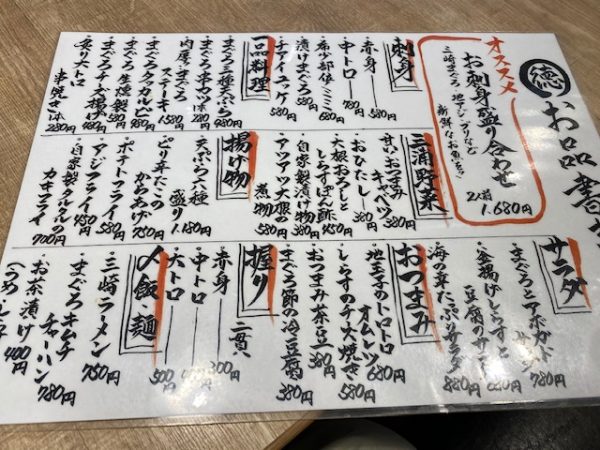 徳
お品書
オススメ
お刺身盛り合わせ
三崎まぐろ 地アジ、ブリなど
新鮮なお魚を
2人前
1.680円
刺身
・赤身 580円
・中トロ 780円
・希少部位
・漬けまぐろ 580円
・チアイユッケ 580円
一品料理
・まぐろ三種天ぷら 980円
・まぐろ串カツ
・肉厚まぐろ
ステーキ 1.580円
・まぐろタタカルビ 980円
・まぐろ生燻製 580円
・まぐろチーズ揚げ
・炙り大トロ
串焼き1本 280円
三浦野菜
・甘いおつまみ
キャベツ 380円
・おひたし 380円
・大根おろしと
しらすぽん酢 450円
・自家製漬け物 380円
・アツアツ大根の
煮物 580円
揚げ物
・天ぷら六種
盛り 1.180円
・ピリ辛たこの
からあげ 750円
・ポテトフライ 580円
・アジフライ 450円
・自家製タルタルの
カキフライ 700円
サラダ
・まぐろとアボガド
サラダ 780円
・釜揚げしらすと
豆腐のサラダ 680円
・海の幸たっぷりサラダ 880円
おつまみ
・地玉子のトロトロ
オムレツ 680円
・しらすのチーズ焼き 580円
・おつまみ茶豆 380円
・まぐろ節の冷豆腐 380円
握り
二貫
・赤身 300円
・中トロ 400円
・大トロ 500円
〆飯麺
・三崎ラーメン 750円
・まぐろキムチ
チャーハン 780円
・お茶漬け 400円